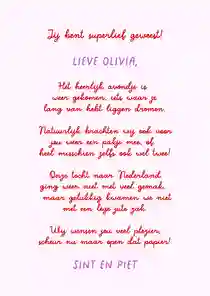 Jij bent superlief geweest!
LIEVE OLIVIA,
Het heerlijk avondje is
weer gekomen, iets waar je
lang van hebt liggen dromen.
Natuurlijk brachten wij ook voor
jou weer een pakje mee, of
heel misschien zelfs ook wel twee!
Onze tocht naar Nederland
ging weer niet met veel gemak,
maar gelukkig kwamen we niet
met een lege jute zak.
Wij wensen jou veel plezier,
scheur nu maar open dat papier!
SINT EN PIET